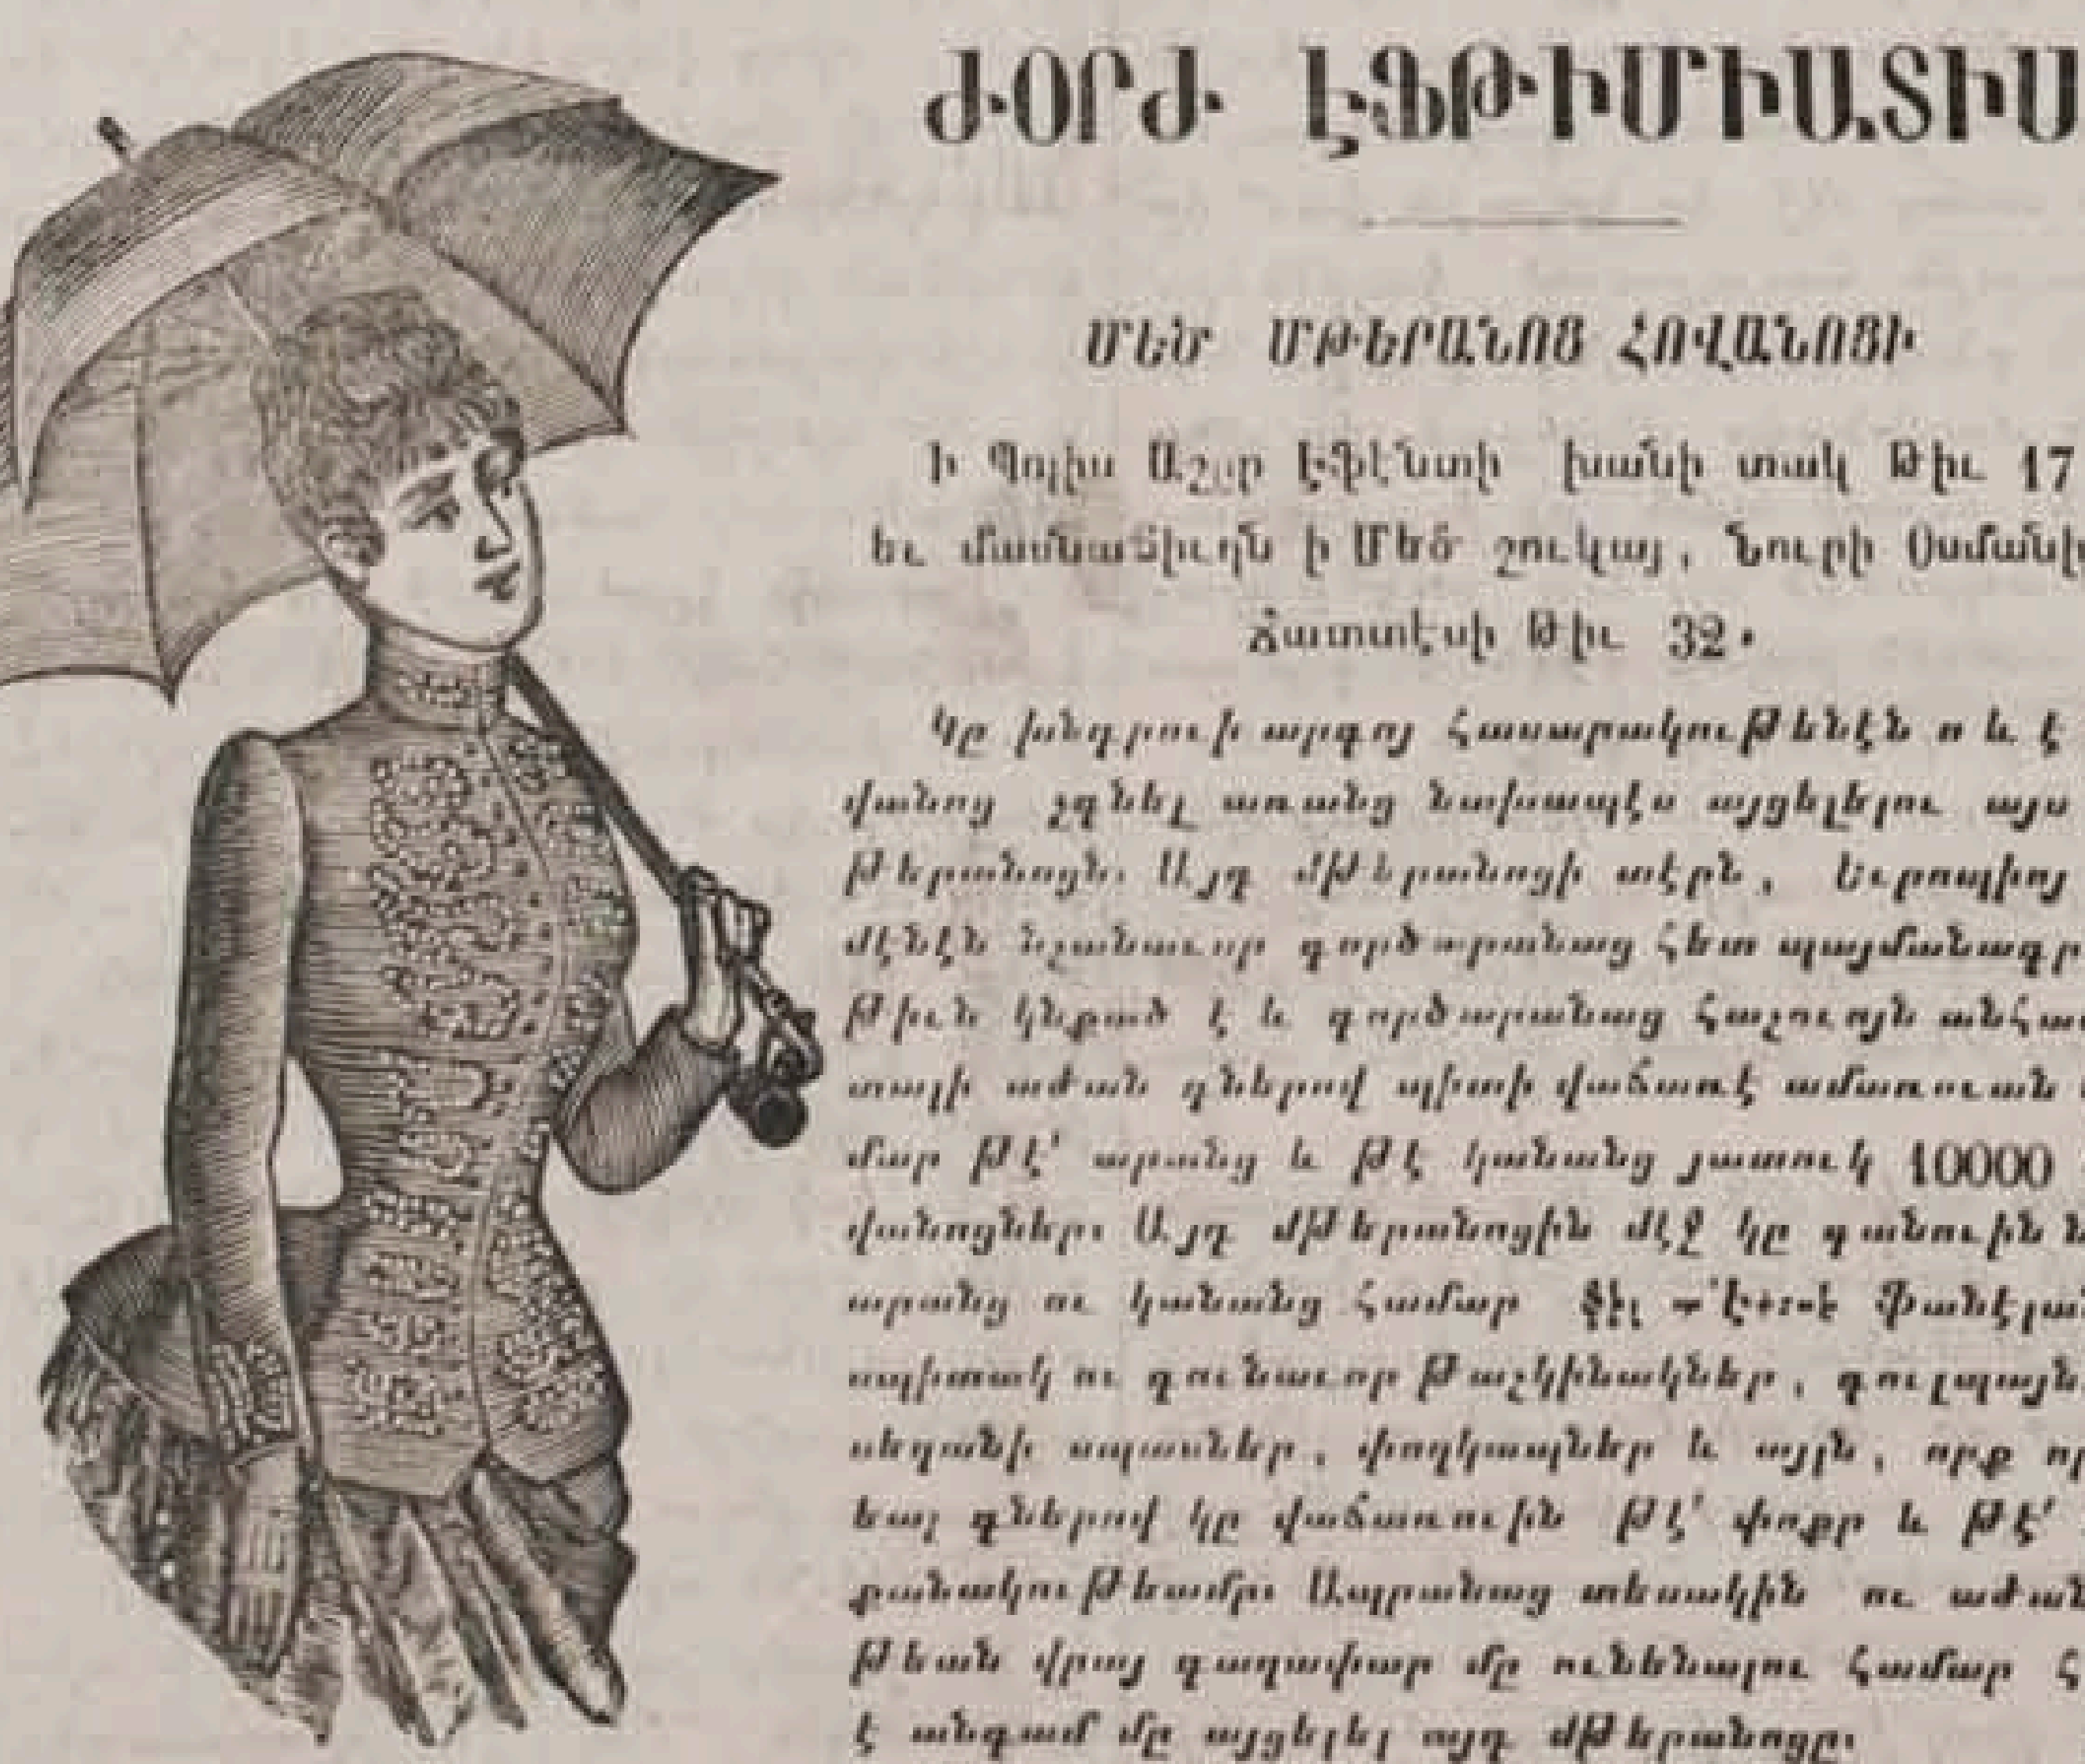 ԺՕՐԺ ԷՖԹԻՄԻԱՏԻՍ
ՄԵԾ ՄԹԵՐԱՆՈՑ ՀՈՎԱՆՈՑԻ
Ի Պոլիս Աշըր Էֆէնտի խանի տակ Թիւ 17
եւ մասնաճիւղն ի Մեծ շուկայ, Նուրի Օսմանիյ
Ճատտէսի Թիւ 32.
Կը խնդրուի արգոյ հասարակութենէն ո և է
վանոց չգնել առանց նախապէս այցելելու այս
թերանոցն. Այդ մթերանոցի տէրն, Եւրոպիոյ
մէնէն նշանաւոր գործարանաց հետ պայմանագր
թիւն կնքած է և գործարանաց հաշուոյն անհաւ
տալի աժան գներով պիտի վաճառէ ամառուան
մար թէ՛ արանց և թէ կանանց յատուկ 10000
վանոցներ. Այդ մթերանոցին մէջ կը գտնուին ն
արանց ու կանանց համար ֆիլ տ՚էգոս Ֆանէլան
սպիտակ ու գունաւոր թաշկինակներ, գուլպայն
սեղանի սպասներ, փողկապներ և այլն, որք որ
եաշ գներով կը վաճառուին թէ՛ փոքր և թէ՛
քանակութեամբ. Ապրանաց տեսակին ու աժան
թեան վրայ գաղափար մը ունենալու համար հ
է անգամ մը այցելել այդ մթերանոցը.